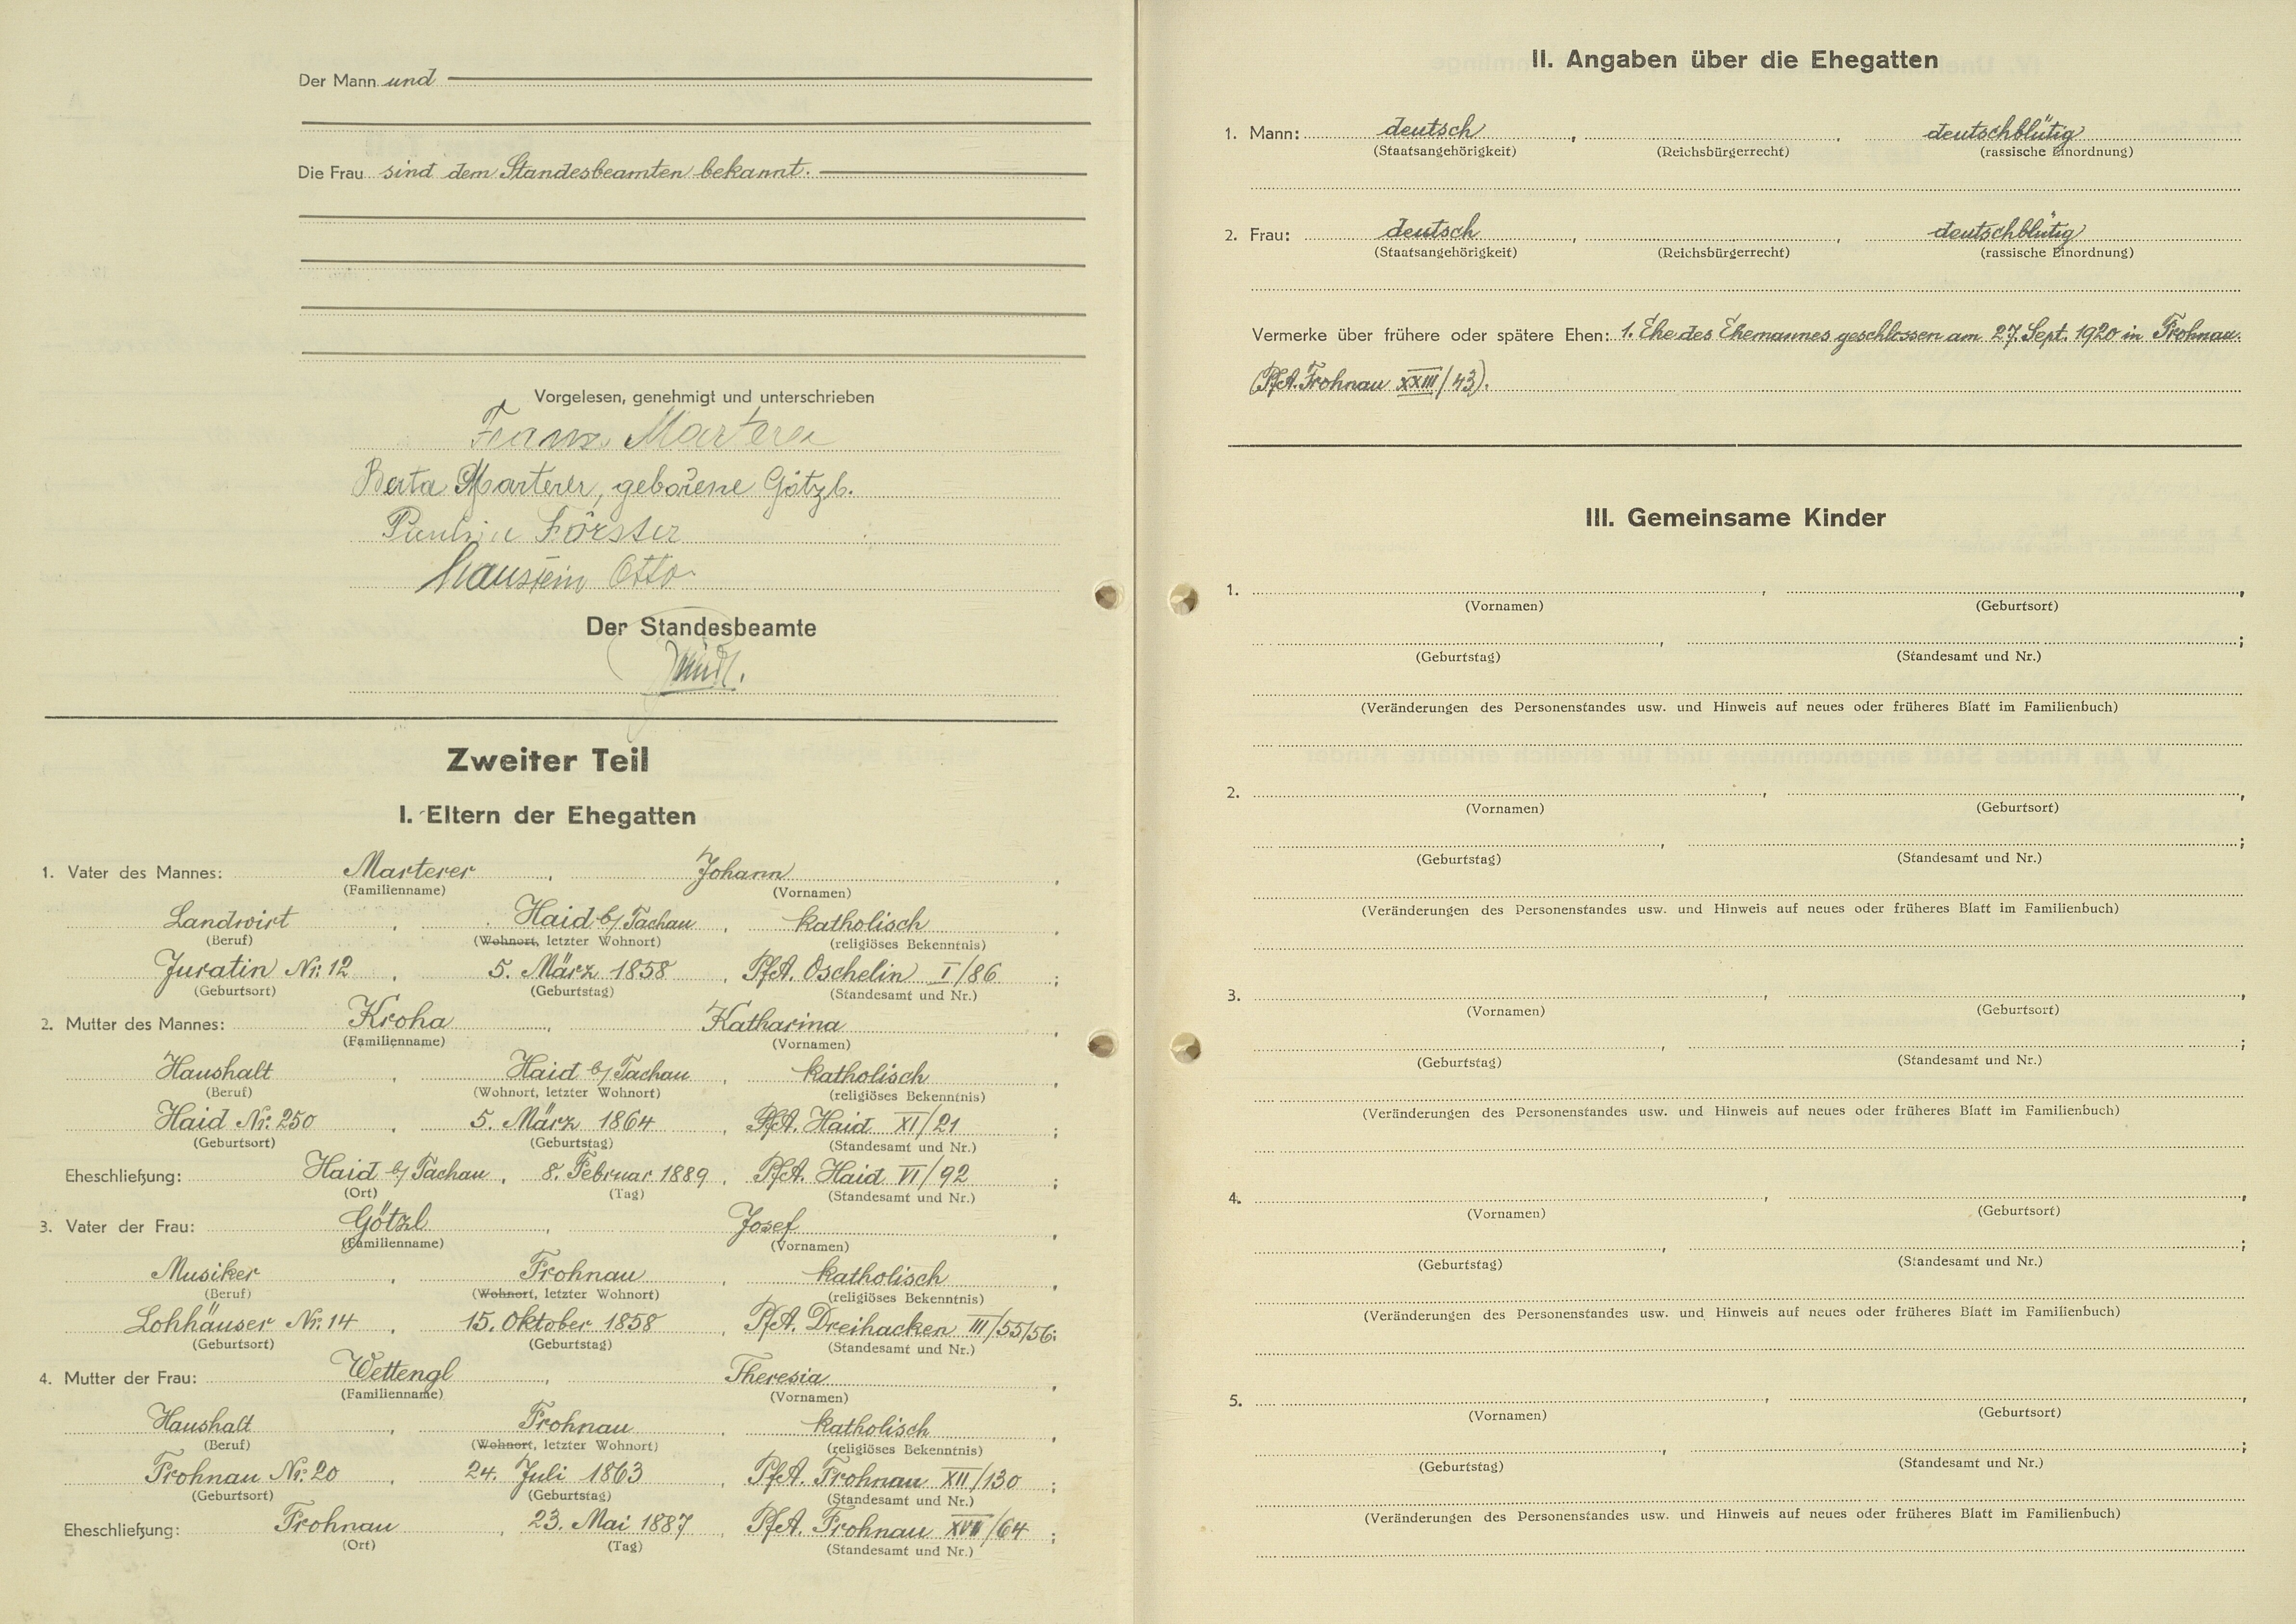 Der Mann und
Die Frau sind dem Standesbeamten bekannt.
Vorgelesen, genehmigt und unterschrieben
Franz Marterer
Berta Marterer, geborene Götzl.
Förster
Otto
Der Standesbeamte
Zweiter Teil
I. Eltern der Ehegatten
1. Vater des Mannes: Marterer, Johann,
(Familienname) (Vornamen)
Landwirt, Haid b/Tachau, katholisch,
(Beruf) (Wohnort, letzter Wohnort) (religiöses Bekenntnis)
Juratin Nr. 12, 5. März 1858, PfA. Oschelin I/86;
(Geburtsort) (Geburtstag) (Standesamt und Nr.)
2. Mutter des Mannes: Kroha, Katharina,
(Familienname) (Vornamen)
Haushalt, Haid b/Tachau, katholisch,
(Beruf) (Wohnort, letzter Wohnort) (religiöses Bekenntnis)
Haid Nr. 250, 5. März 1864, PfA. Haid XI/21;
(Geburtsort) (Geburtstag) (Standesamt und Nr.)
Eheschließung: Haid b/Tachau, 8. Februar 1889, PfA. Haid VI/92;
(Ort) (Tag) (Standesamt und Nr.)
3. Vater der Frau: Götzl, Josef,
(Familienname) (Vornamen)
Musiker, Frohnau, katholisch,
(Beruf) (Wohnort, letzter Wohnort) (religiöses Bekenntnis)
Lohhäuser Nr. 14, 15. Oktober 1858, PfA. Dreihacken III/55/56;
(Geburtsort) (Geburtstag) (Standesamt und Nr.)
4. Mutter der Frau: Wettengl, Theresia,
(Familienname) (Vornamen)
Haushalt, Frohnau, katholisch,
(Beruf) (Wohnort, letzter Wohnort) (religiöses Bekenntnis)
Frohnau Nr. 20, 24. Juli 1863, PfA. Frohnau XII/130;
(Geburtsort) (Geburtstag) (Standesamt und Nr.)
Eheschließung: Frohnau, 23. Mai 1887, PfA. Frohnau /64;
(Ort) (Tag) (Standesamt und Nr.)
II. Angaben über die Ehegatten
1. Mann: deutsch, , deutschblütig
(Staatsangehörigkeit) (Reichsbürgerrecht) (rassische Einordnung)
2. Frau: deutsch, , deutschblütig
(Staatsangehörigkeit) (Reichsbürgerrecht) (rassische Einordnung)
Vermerke über frühere oder spätere Ehen: 1. Ehe des Ehemannes geschlossen am 27. Sept. 1920 in Frohnau.
(PfA. Frohnau XXIII/43).
III. Gemeinsame Kinder
1. , ,
(Vornamen) (Geburtsort)
, ;
(Geburtstag) (Standesamt und Nr.)
(Veränderungen des Personenstandes usw. und Hinweis auf neues oder früheres Blatt im Familienbuch)
2. , ,
(Vornamen) (Geburtsort)
, ;
(Geburtstag) (Standesamt und Nr.)
(Veränderungen des Personenstandes usw. und Hinweis auf neues oder früheres Blatt im Familienbuch)
3. , ,
(Vornamen) (Geburtsort)
, ;
(Geburtstag) (Standesamt und Nr.)
(Veränderungen des Personenstandes usw. und Hinweis auf neues oder früheres Blatt im Familienbuch)
4. , ,
(Vornamen) (Geburtsort)
, ;
(Geburtstag) (Standesamt und Nr.)
(Veränderungen des Personenstandes usw. und Hinweis auf neues oder früheres Blatt im Familienbuch)
5. , ,
(Vornamen) (Geburtsort)
, ;
(Geburtstag) (Standesamt und Nr.)
(Veränderungen des Personenstandes usw. und Hinweis auf neues oder früheres Blatt im Familienbuch)